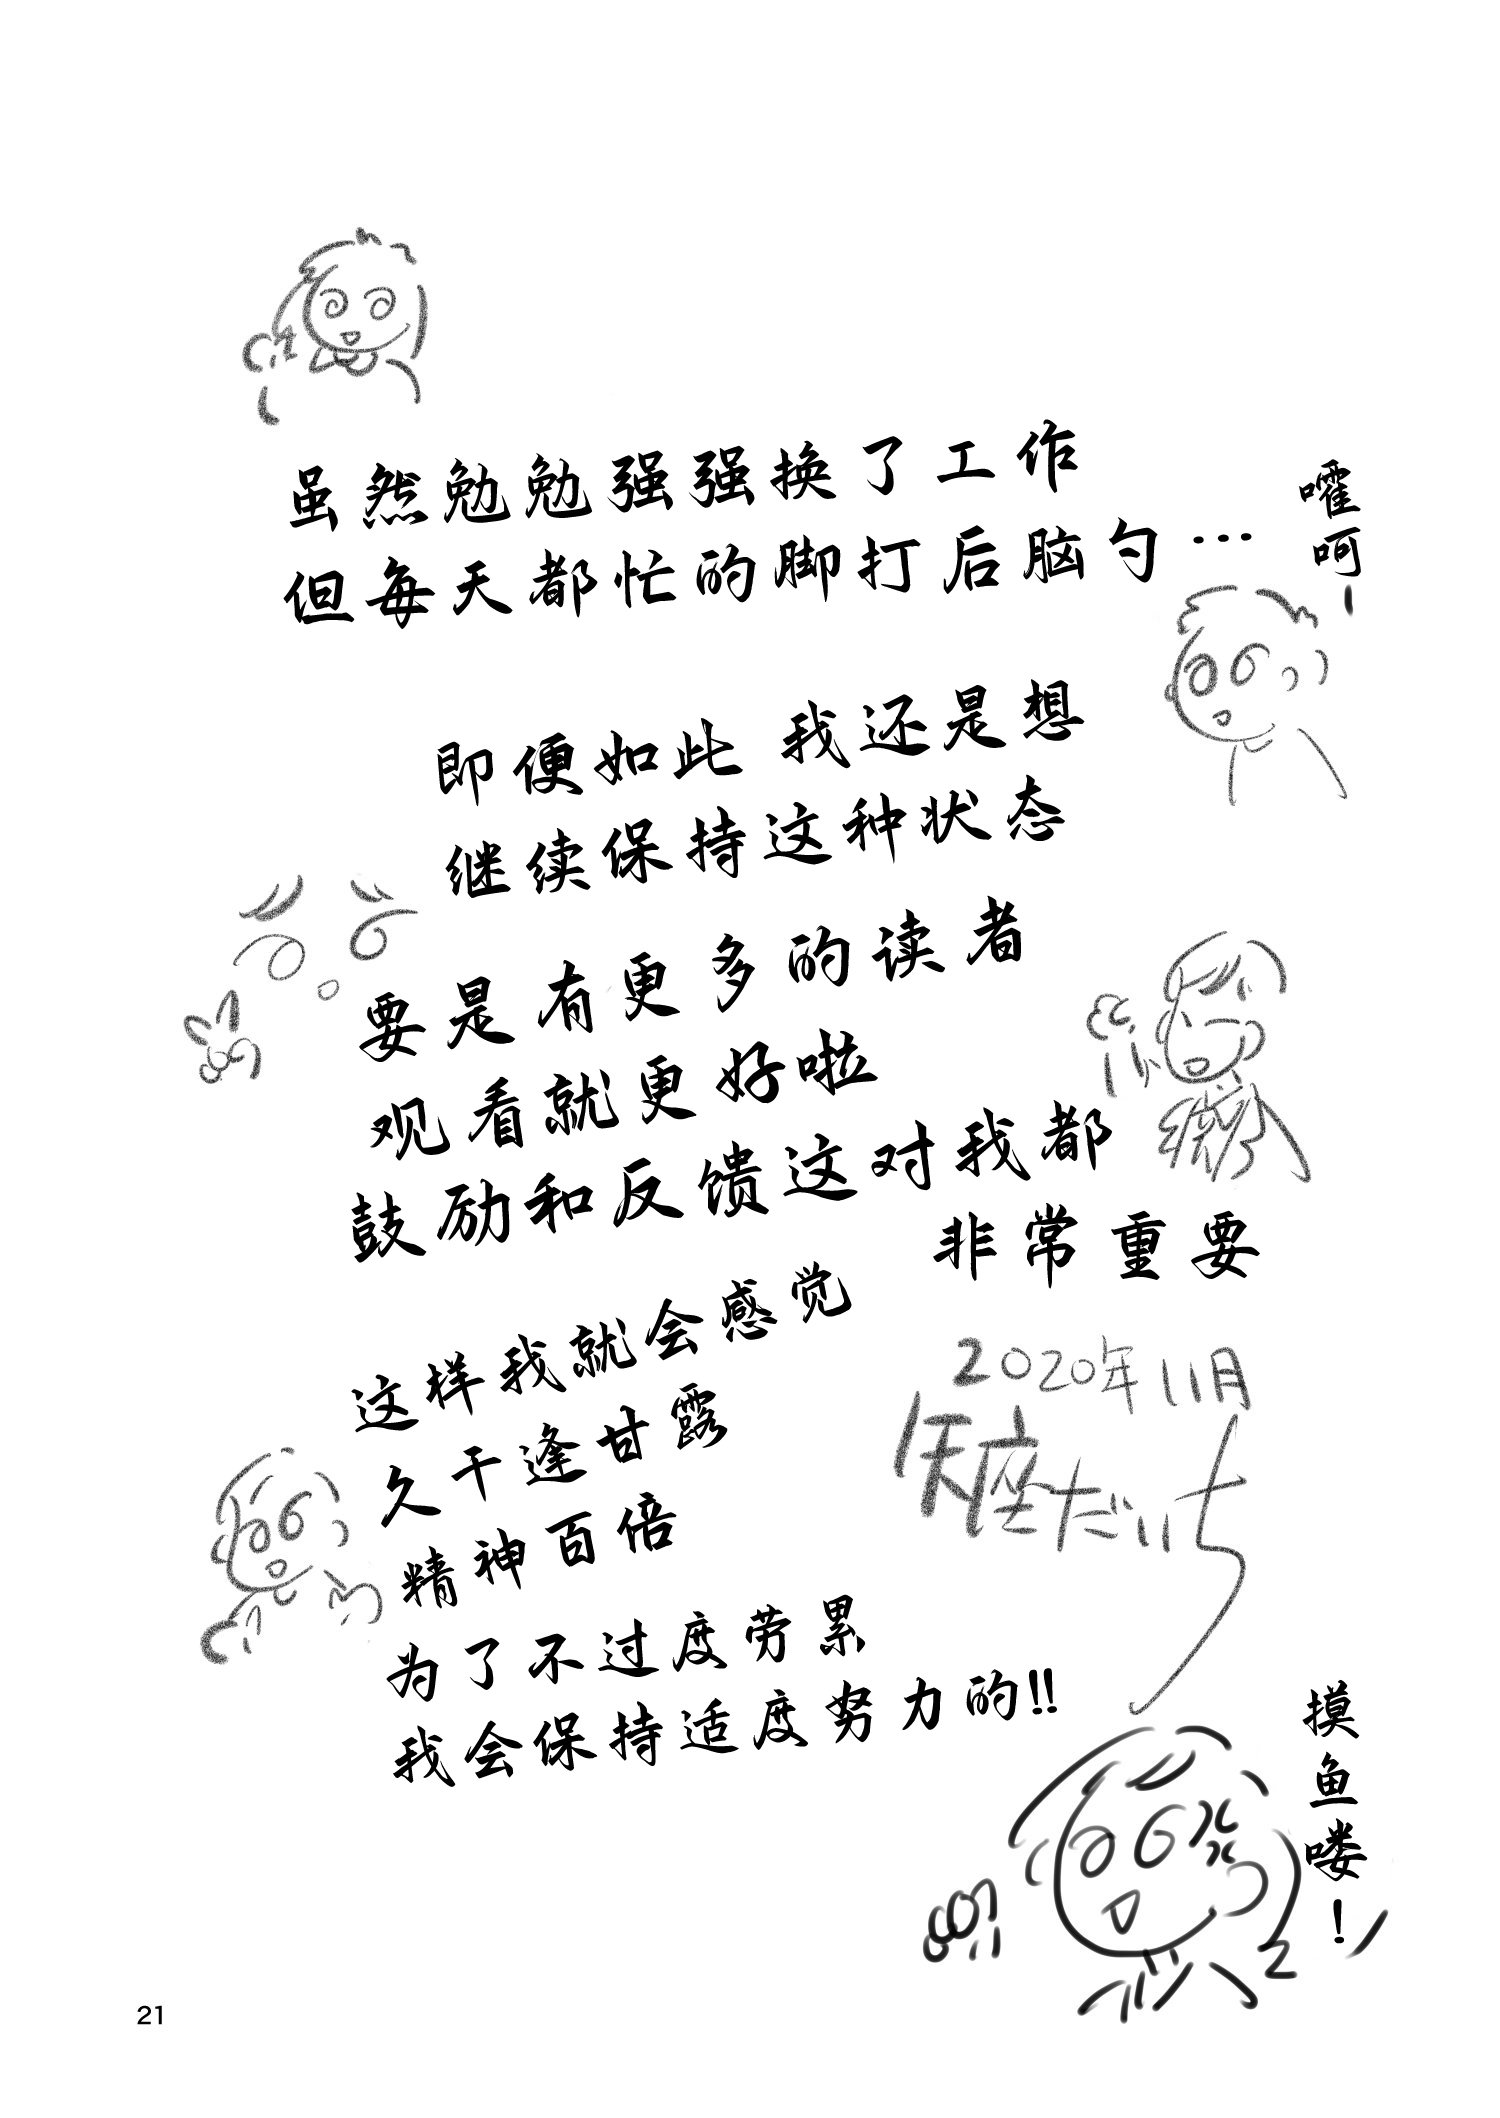 虽然勉勉强强换了工作
但每天都忙的脚打后脑勺…
嚯呵-
即便如此 我还是想
继续保持这种状态
要是有更多的读者
观看就更好啦
鼓励和反馈这对我都
非常重要
这样我就会感觉
久干逢甘露
精神百倍
为了不过度劳累
我会保持适度努力的!!
2020年11月
矢座だいち
摸鱼喽!
21